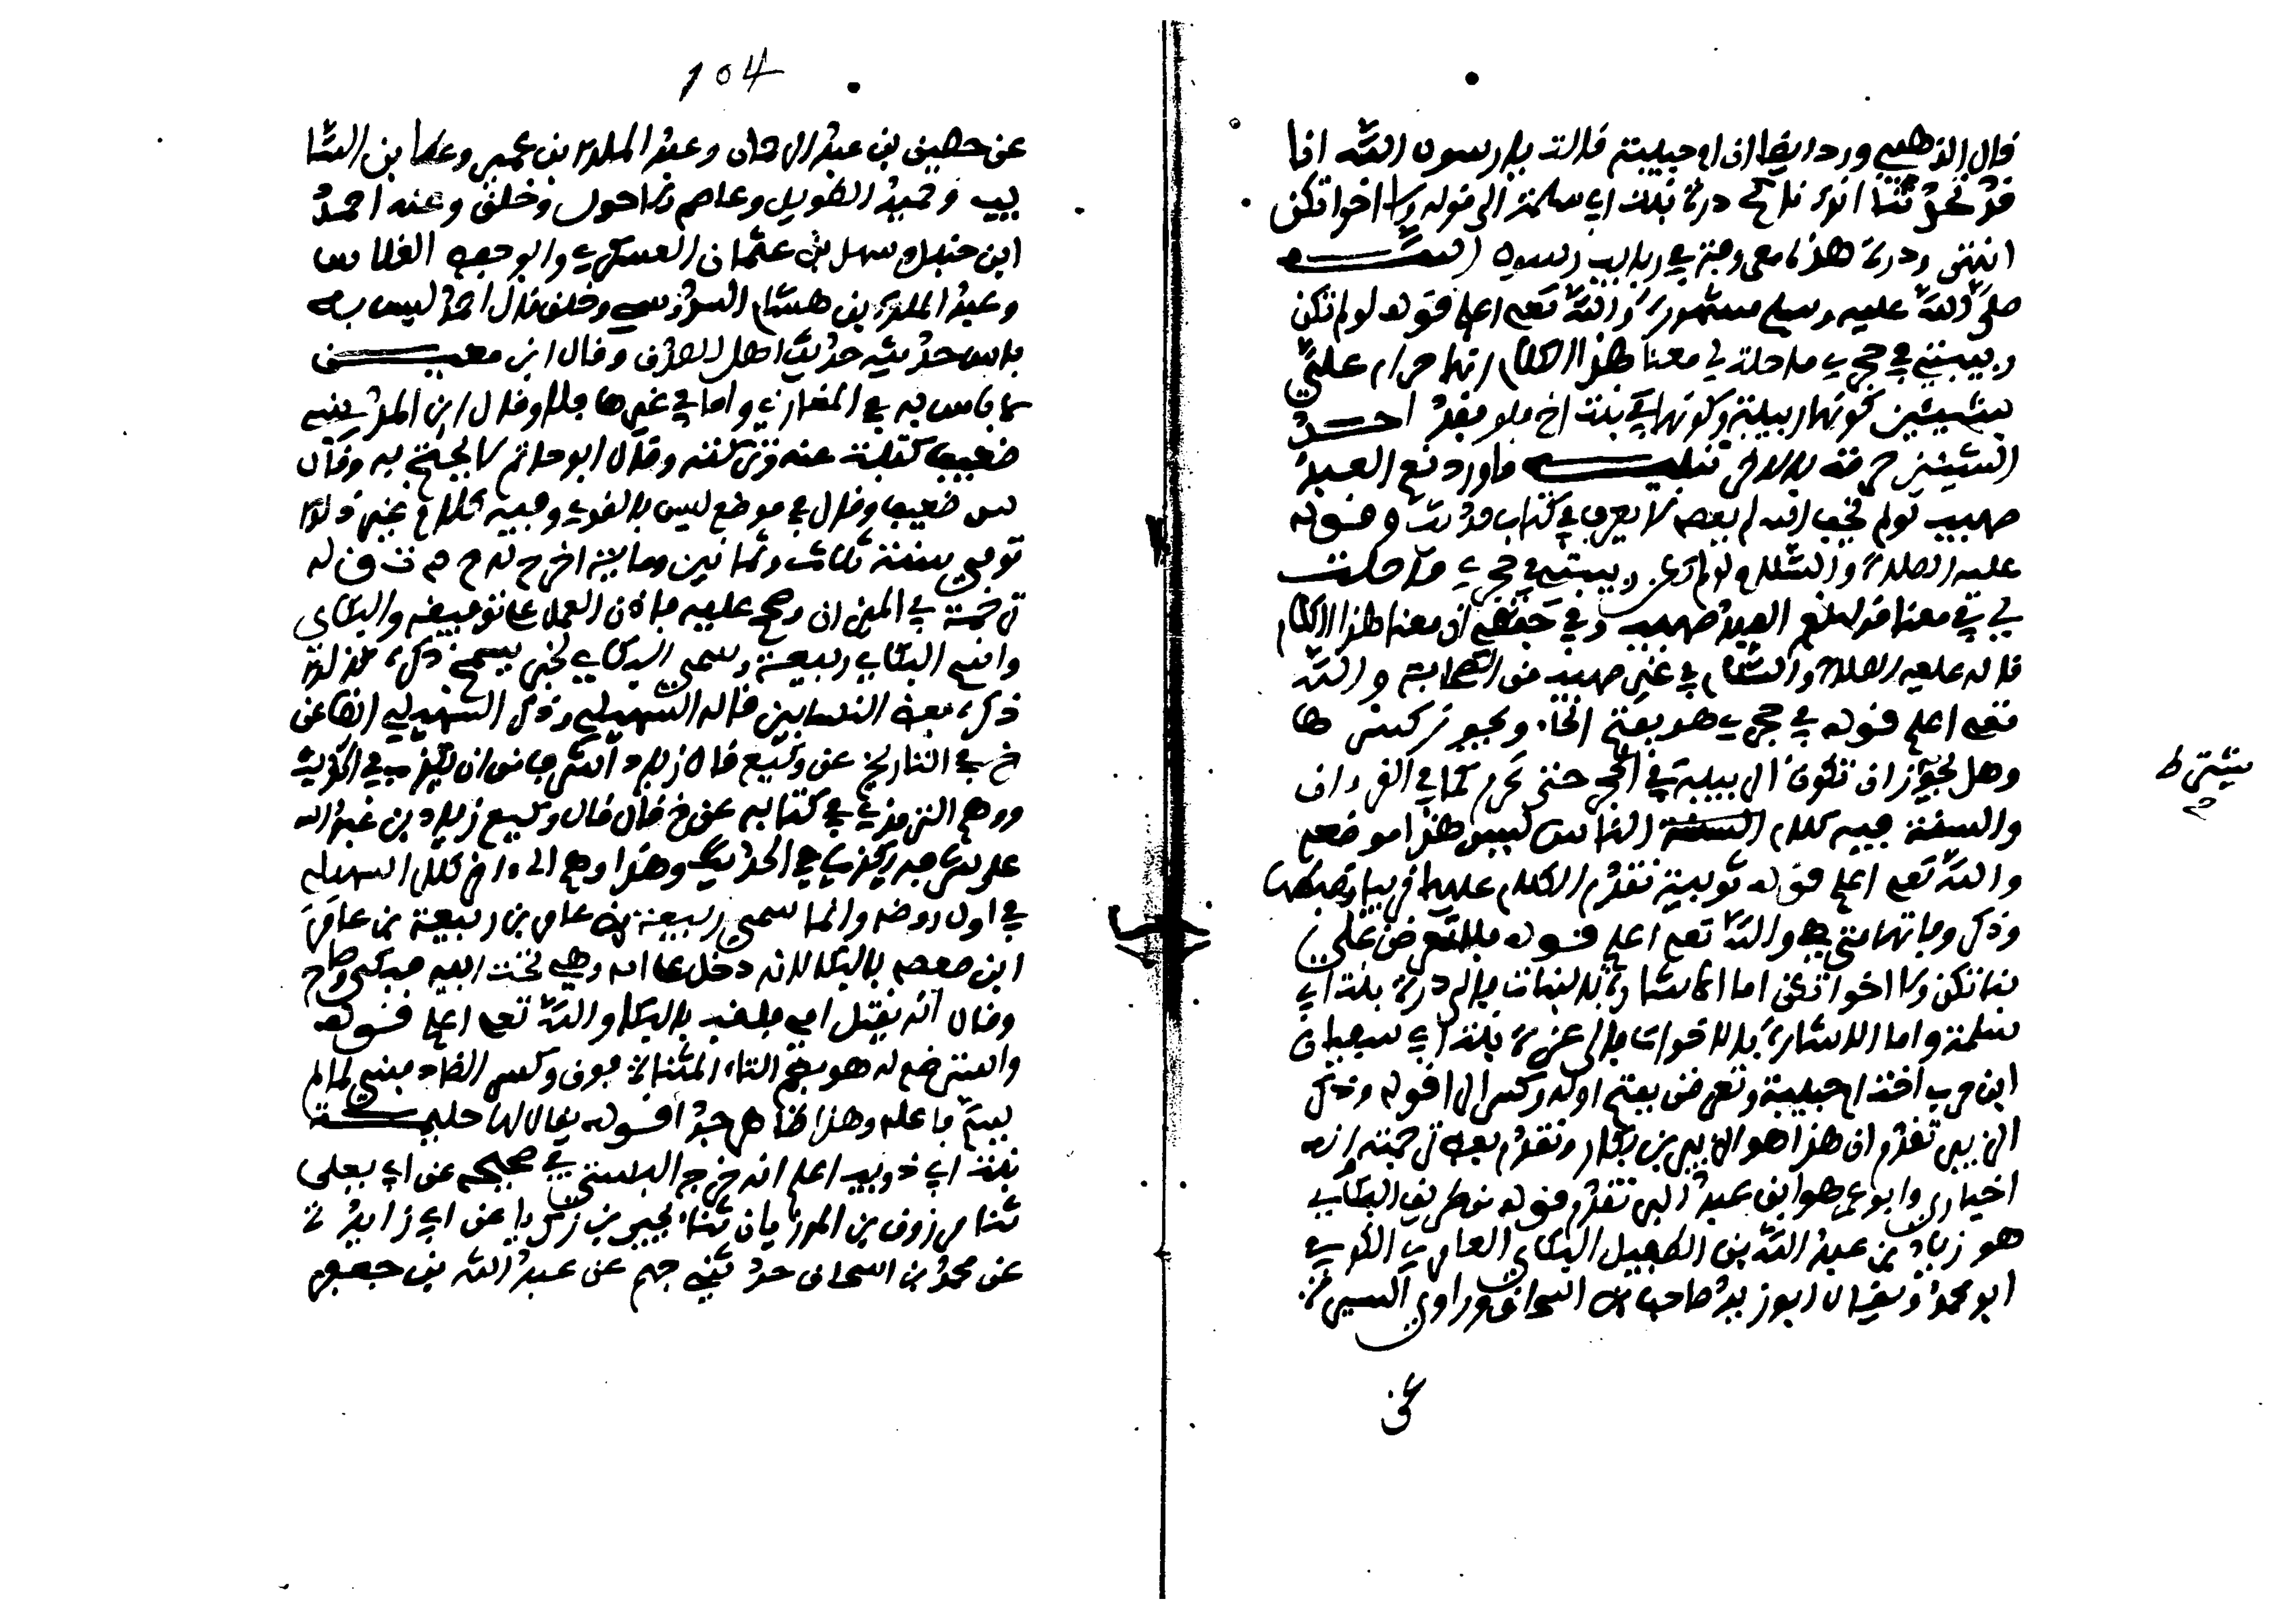 قال الذهبي ورد ايضا ان ام حبيبة قالت يا رسول الله انا
قد تحدثنا انك ناكح درة بنت ابي سلمة الى قوله ولا اخواتكن
انتهى ودرة هذه معروفة في ربايب رسول الله
صلى الله عليه وسلم مشهورة والله تعلى اعلم قوله لو لم تكن
ربيبتي في حجري ما حلت لي معنا هذا الكلام انها حرام علي
بشيئين كونها ربيبة وكونها بنت اخ فلو فقد احد
الشيئين حرمت بالاخر تنبيه ما ورد نعم العبد
صهيب لو لم يخف الله لم يعصه لا يعرف في كتاب حديث وقوله
عليه الصلاة والسلام لو لم تكن ربيبتي في حجري ما حلت
لي في معنا قوله نعم العبد صهيب وفي ان معنا هذا الكلام
قاله عليه الصلاة والسلام في غير صهيب من الصحابة والله
تعلى اعلم قوله في حجري هو بفتح الحاء ويجوز كسرها
وهل يجوز ان تكون الربيبة في الحجر حتى تحرم كما في القرءان
يشترط
والسنة فيه كلام الناس ليس هذا موضعه
والله تعلى اعلم قوله ثويبة تقدم الكلام عليها قريبا وضبطها
وذكر وفاتها متى هي والله تعلى اعلم قوله فلا تعرضن علي
بناتكن ولا اخواتكن اما الاشارة بالبنات فالى درة بنت ابي
سلمة واما الاشارة بالاخوات فالى عزة بنت ابي سفيان
ابن حرب اخت ام حبيبة وتعرضن بفتح اوله وكسر الرا قوله وذكر
الزبير تقدم ان هذا هو الزبير بن بكار وتقدم بعض ترجمته انه
اخباري وابو عمر هو ابن عبد البر تقدم قوله من طريف البكاي
هو زياد بن عبد الله بن الطفيل البكاي العامري الكوفي
ابو محمد ويقال ابو زيد صاحب ابن اسحاق وراوي السيرة
عن
104
عن حصين بن عبد الرحمان وعبد الملك ابن عمير وعطا بن السا
يب وحميد الطويل وعاصم الاحول وخلق وعنه احمد
ابن حنبل وسهل بن عثمان العسكري وابو حفص الفلاس
وعبد الملك بن هشام السدوسي وخلق قال احمد ليس به
باس حديثه حديث اهل الصدق وقال ابن معين
لا باس به في المغازي واما في غيرها فلا وقال ابن المديني
ضعيف كتبت عنه وتركته وقال ابو حاتم لا يحتج به وقال
س ضعيف وقال في موضع ليس بالقوي وفيه كلام غير ذلك
توفي سنة ثلاث وثمانين وماية اخرج له خ م ت ق له
ترجمة في الميزان وصح عليه فان العمل على توثيقه والبكاي
واسم البكاي ربيعة وسمي البكاي لخبر يسمج ذكره كذلك
ذكره بعض النسابين قاله السهيلي وذكر السهيلي ايضا عن
خ في التاريخ عن وكيع قال زياد اشرف من ان يكذب في الحديث
ووهم الترمذي في كتابه عن خ قال قال وكيع زياد بن عبد الله
على شرفه يكذب في الحديث وهذا وهم الى ءاخر كلام السهيلي
في اول روضه وانما سمي ربيعة بن عامر بن ربيعة بن عامر
ابن صعصعة بالبكا لانه دخل على امه وهي تحت ابيه فبكى وصاح
وقال انه يقتل امي فلقب بالبكا والله تعلى اعلم قوله
واسترضع له هو بضم التاء المثناة فوق وكسر الضاد مبني لما لم
يسم فاعله وهذا ظاهر جدا قوله يقال لها حليمة
بنت ابي ذويب اعلم انه خرج البستي في صحيحه عن ابي يعلى
ثنا مسروق بن المرزبان ثنا يحيى بن زكريا عن ابي زايدة
عن محمد بن اسحاق حدثني جهم عن عبد الله بن جعفر